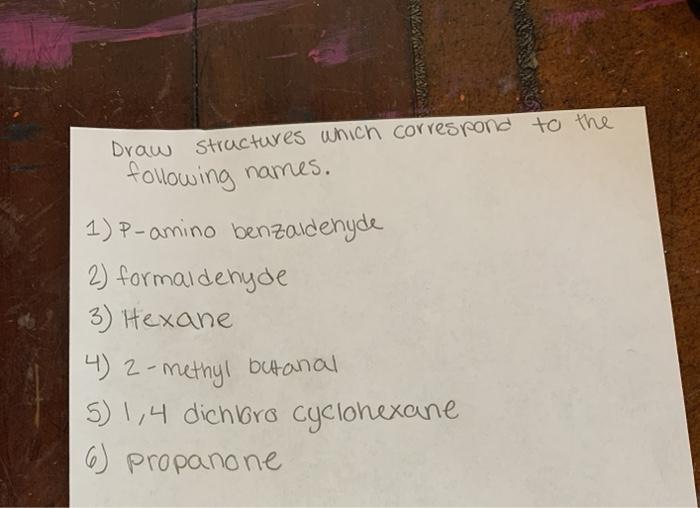 Draw structures which correspond to the
following names.
1) P-amino benzaldehyde
2) formaldehyde
3) Hexane
4) 2-methyl butanal
5) 1,4 dichloro cyclohexane
6) propanone